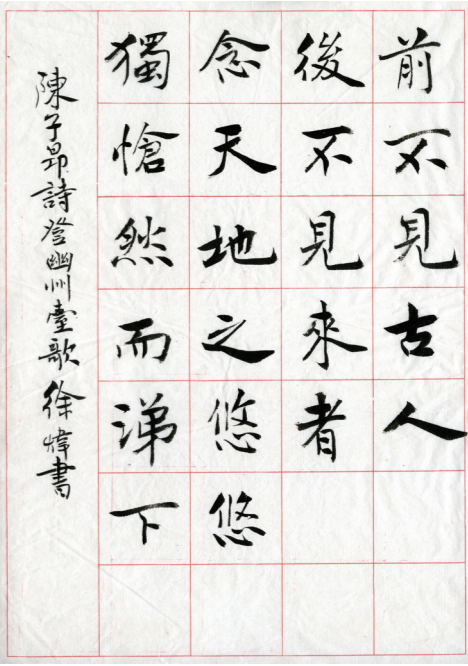 前不見古人
後不見來者
念天地之悠悠
獨愴然而涕下
陳子昂詩登幽州臺歌 徐煒書